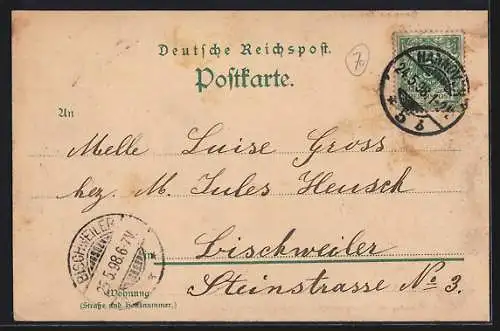 Deutsche Reichspost.
Postkarte.
An
Melle Luise Gross
bez. M. Jules Heusch
in Bischweiler
Steinstrasse No 3.
Wohnung
(Straße und Hausnummer.)
HANNOVER
24.5.98.
* 5 b
BISCHWEILER
25.5.98.6-7V.
*
70